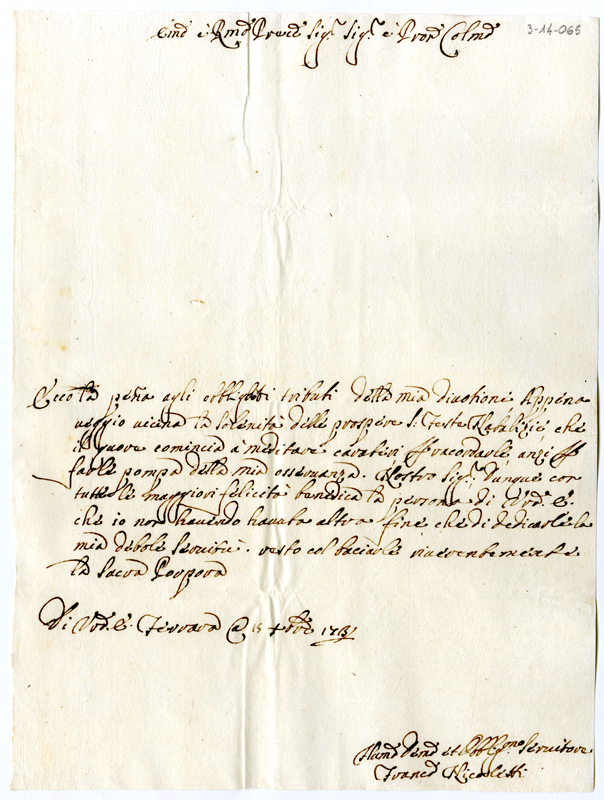 3-14-065
Emo è Rmo Prne Sigr. Sigr. è Pron Colmo
Ecco la pena agli obbligati tributi della mia divotione Appena
veggio vicina la solenità delle prospere S. Feste Natalizie che
il quore comincia à meditare carateri p racordarle anzi p
farle pompa della mia osservanza. Nostro Sigr. Dunque con
tutte le maggiori felicità benedica la persona di V.
che io non havendo havuta altra fine che di dedicarle la
mia debole servitù. resto col baciarle riverentemente
la Sacra Porpora
Di V. E. Ferrara @ 15 Xbre
Humo Devmo et Obblgmo Servitore
Franco Nicoletti